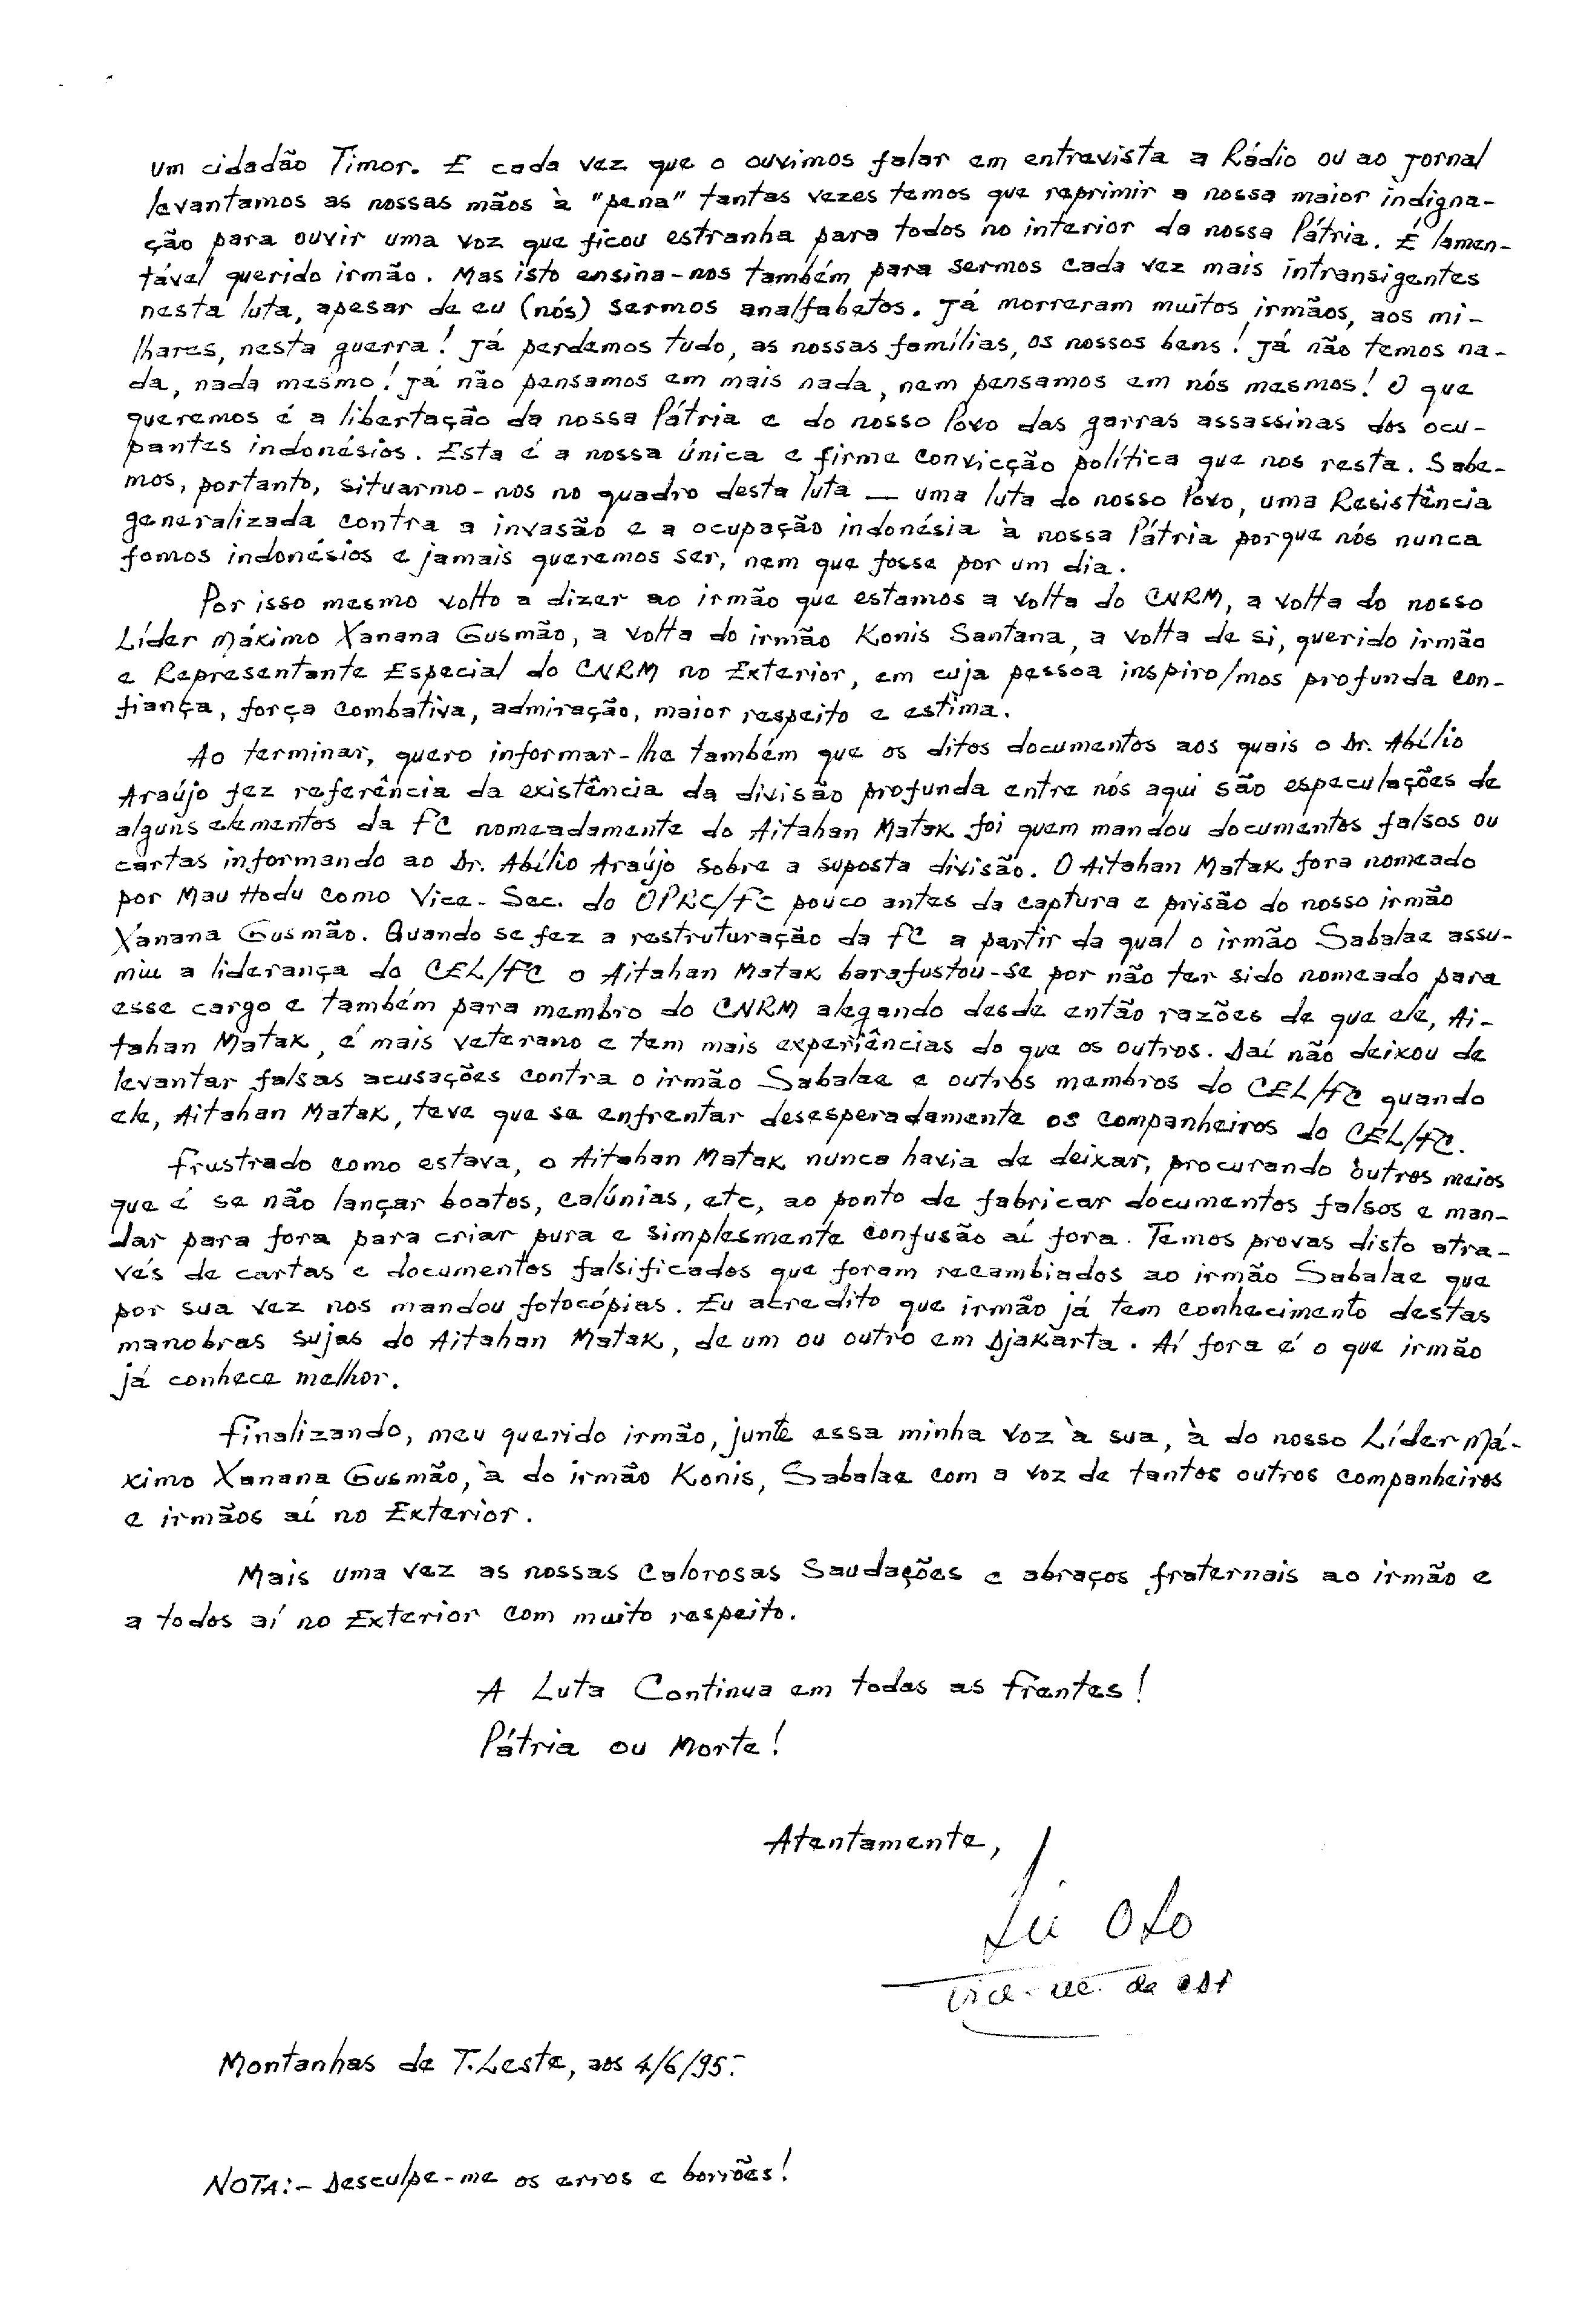 um cidadão Timor. E cada vez que o ouvimos falar em entrevista a Rádio ou ao jornal
levantamos as nossas mãos à "pena" tantas vezes temos que reprimir a nossa maior indigna-
ção para ouvir uma voz que ficou estranha para todos no interior da nossa Pátria. É lamen-
tável querido irmão. Mas isto ensina-nos também para sermos cada vez mais intransigentes
nesta luta, apesar de eu (nós) sermos analfabetos. Já morreram muitos irmãos, aos mi-
lhares, nesta guerra! Já perdemos tudo, as nossas famílias, os nossos bens! Já não temos na-
da, nada mesmo! Já não pensamos em mais nada, nem pensamos em nós mesmos! O que
queremos é a libertação da nossa Pátria e do nosso Povo das garras assassinas dos ocu-
pantes indonésios. Esta é a nossa única e firme convicção política que nos resta. Sabe-
mos, portanto, situarmo-nos no quadro desta luta — uma luta do nosso Povo, uma Resistência
generalizada contra a invasão e a ocupação indonésia à nossa Pátria porque nós nunca
fomos indonésios e jamais queremos ser, nem que fosse por um dia.
Por isso mesmo volto a dizer ao irmão que estamos a volta do CNRM, a volta do nosso
Líder Máximo Xanana Gusmão, a volta do irmão Konis Santana, a volta de si, querido irmão
e Representante Especial do CNRM no Exterior, em cuja pessoa inspiro/mos profunda con-
fiança, força combativa, admiração, maior respeito e estima.
Ao terminar, quero informar-lhe também que os ditos documentos aos quais o Dr. Abílio
Araújo fez referência da existência da divisão profunda entre nós aqui são especulações de
alguns elementos da FC nomeadamente do Aitahan Matak foi quem mandou documentos falsos ou
cartas informando ao Dr. Abílio Araújo sobre a suposta divisão. O Aitahan Matak fora nomeado
por Mau Hodu como Vice-Sec. do OPRC/FC pouco antes da captura e prisão do nosso irmão
Xanana Gusmão. Quando se fez a restruturação da FC a partir da qual o irmão Sabalae assu-
miu a liderança do CEL/FC o Aitahan Matak barafustou-se por não ter sido nomeado para
esse cargo e também para membro do CNRM alegando desde então razões de que ele, Ai-
tahan Matak, é mais veterano e tem mais experiências do que os outros. Daí não deixou de
levantar falsas acusações contra o irmão Sabalae e outros membros do CEL/FC quando
ele, Aitahan Matak, teve que se enfrentar desesperadamente os companheiros do CEL/FC.
Frustrado como estava, o Aitahan Matak nunca havia de deixar, procurando outros meios
que é se não lançar boatos, calúnias, etc, ao ponto de fabricar documentos falsos e man-
dar para fora para criar pura e simplesmente confusão aí fora. Temos provas disto atra-
vés de cartas e documentos falsificados que foram recambiados ao irmão Sabalae que
por sua vez nos mandou fotocópias. Eu acredito que irmão já tem conhecimento destas
manobras sujas do Aitahan Matak, de um ou outro em Djakarta. Aí fora é o que irmão
já conhece melhor.
Finalizando, meu querido irmão, junte essa minha voz à sua, à do nosso Líder Má-
ximo Xanana Gusmão, à do irmão Konis, Sabalae com a voz de tantos outros companheiros
e irmãos aí no Exterior.
Mais uma vez as nossas calorosas saudações e abraços fraternais ao irmão e
a todos aí no Exterior com muito respeito.
A Luta Continua em todas as Frentes!
Pátria ou Morte!
Atentamente,
Lu Olo
Vice-sec. da CDF
Montanhas de T.Leste, aos 4/6/95.-
NOTA:- Desculpe-me os erros e borrões!